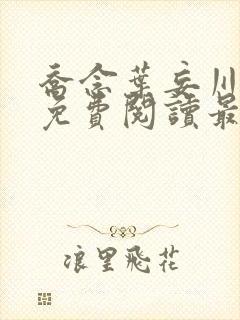 喬念葉妄川
免費閱讀最
浪里飛花